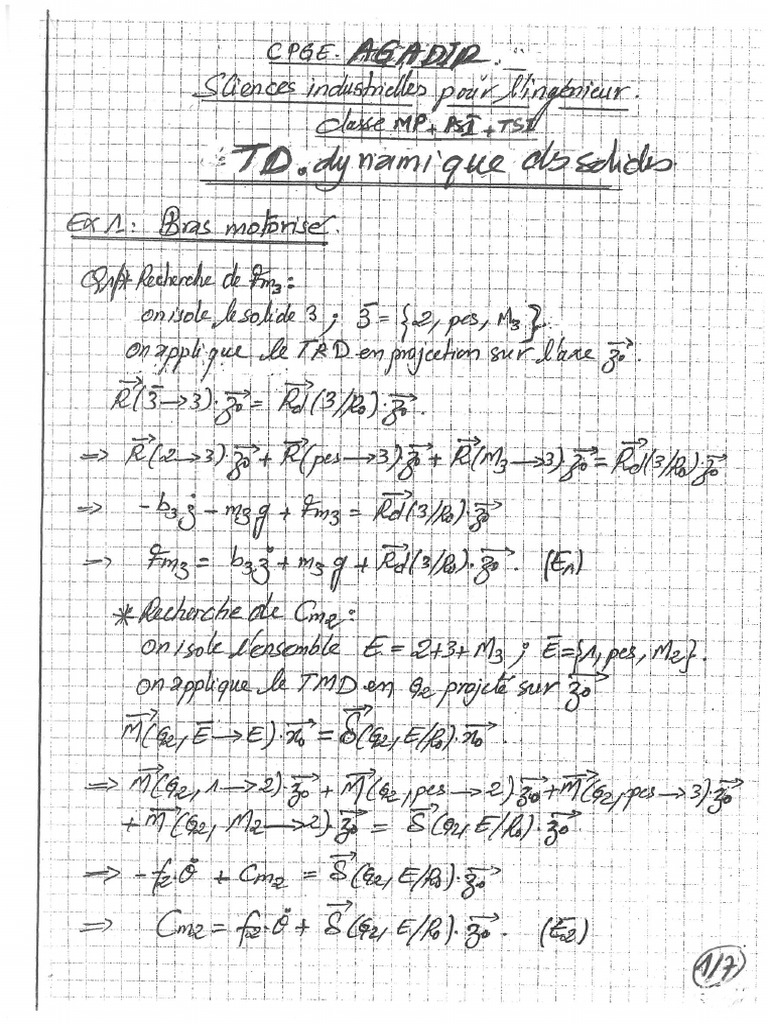 CPGE. AGADIR.
Sciences industrielles pour l'ingénieur.
classe MP + PSI + TSI
TD. dynamique des solides
Ex 1: Bras motorisé.
Q1/* Recherche de Fm3:
on isole le solide 3 ; 3̄ = {2, pes, M3}.
on applique le TRD en projection sur l'axe z0→.
R→(3̄→3)·z0→ = Rd→(3/R0)·z0→.
⇒ R→(2→3)·z0→ + R→(pes→3)·z0→ + R→(M3→3)·z0→ = Rd→(3/R0)·z0→
⇒ -b3ż - m3g + Fm3 = Rd→(3/R0)·z0→
→ Fm3 = b3ż + m3g + Rd→(3/R0)·z0→. (E1)
* Recherche de Cm2:
on isole l'ensemble E = 2+3+M3 ; Ē={1, pes, M2}.
on applique le TMD en G2 projeté sur z0→
M→(G2, Ē→E)·x0→ = δ→(G2, E/R0)·x0→.
⇒ M→(G2, 1→2)·z0→ + M→(G2, pes→2)·z0→ + M→(G2, pes→3)·z0→
+ M→(G2, M2→2)·z0→ = δ→(G2, E/R0)·z0→
⇒ -f2·θ̇ + Cm2 = δ→(G2, E/R0)·z0→
⇒ Cm2 = f2·θ̇ + δ→(G2, E/R0)·z0→. (E2)
1/7